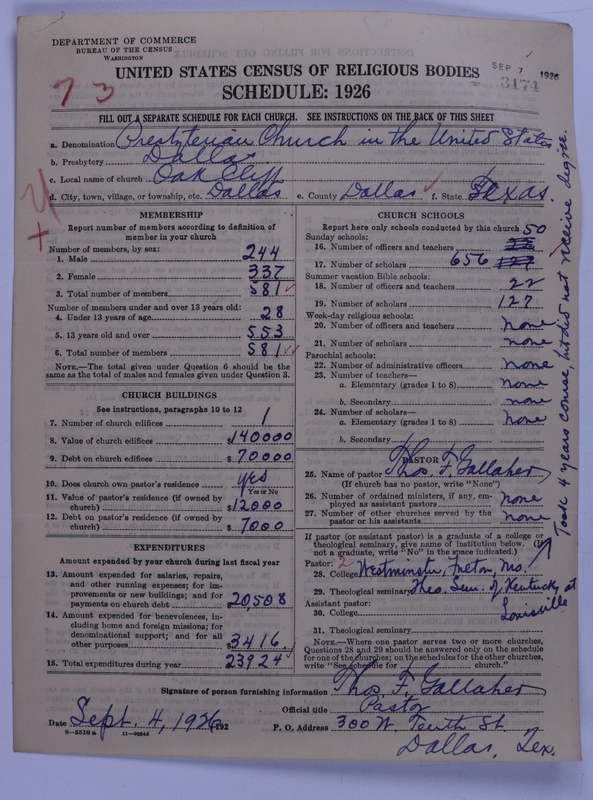 DEPARTMENT OF COMMERCE
BUREAU OF THE CENSUS
WASHINGTON
UNITED STATES CENSUS OF RELIGIOUS BODIES
SCHEDULE: 1926
SEP 7 1926
3174
73
FILL OUT A SEPARATE SCHEDULE FOR EACH CHURCH. SEE INSTRUCTIONS ON THE BACK OF THIS SHEET
a. Denomination Presbyterian Church in the United States
b. Presbytery Dallas
c. Local name of church Oak Cliff
d. City, town, village, or township, etc. Dallas e. County Dallas f. State Texas.
MEMBERSHIP
Report number of members according to definition of
member in your church
Number of members, by sex:
1. Male 244
2. Female 337
3. Total number of members 581
Number of members under and over 13 years old:
4. Under 13 years of age 28
5. 13 years old and over 553
6. Total number of members 581
NOTE.—The total given under Question 6 should be the
same as the total of males and females given under Question 3.
CHURCH BUILDINGS
See instructions, paragraphs 10 to 12
7. Number of church edifices 1
8. Value of church edifices $140000
9. Debt on church edifices $70000
10. Does church own pastor's residence yes
Yes or No
11. Value of pastor's residence (if owned by
church) $12000
12. Debt on pastor's residence (if owned by
church) $7000
EXPENDITURES
Amount expended by your church during last fiscal year
13. Amount expended for salaries, repairs,
and other running expenses; for im-
provements or new buildings; and for
payments on church debt 20508
14. Amount expended for benevolences, in-
cluding home and foreign missions; for
denominational support; and for all
other purposes $3416
15. Total expenditures during year 23924
CHURCH SCHOOLS
Report here only schools conducted by this church
Sunday schools: 50
16. Number of officers and teachers 22
17. Number of scholars 656 127
Summer vacation Bible schools:
18. Number of officers and teachers 22
19. Number of scholars 127
Week-day religious schools:
20. Number of officers and teachers none
21. Number of scholars none
Parochial schools:
22. Number of administrative officers none
23. Number of teachers—
a. Elementary (grades 1 to 8) none
b. Secondary none
24. Number of scholars—
a. Elementary (grades 1 to 8) none
b. Secondary
PASTOR
25. Name of pastor Thos. F. Gallaher
(If church has no pastor, write "None")
26. Number of ordained ministers, if any, em-
ployed as assistant pastors none
27. Number of other churches served by the
pastor or his assistants none
If pastor (or assistant pastor) is a graduate of a college or
theological seminary, give name of institution below. (If
not a graduate, write "No" in the space indicated.)
Pastor: 2
28. College Westminster, Fulton, Mo.
29. Theological seminary Theo. Sem. of Kentucky at
Louisville
Assistant pastor:
30. College
31. Theological seminary
NOTE.—Where one pastor serves two or more churches,
Questions 28 and 29 should be answered only on the schedule
for one of the churches; on the schedules for the other churches,
write "See schedule for church."
Took 4 years course, but did not receive degree.
Signature of person furnishing information Thos. F. Gallaher
Official title Pastor
Date Sept. 4, 1926 192 P. O. Address 300 W. Tenth St.
Dallas, Tex.
8—5518 a